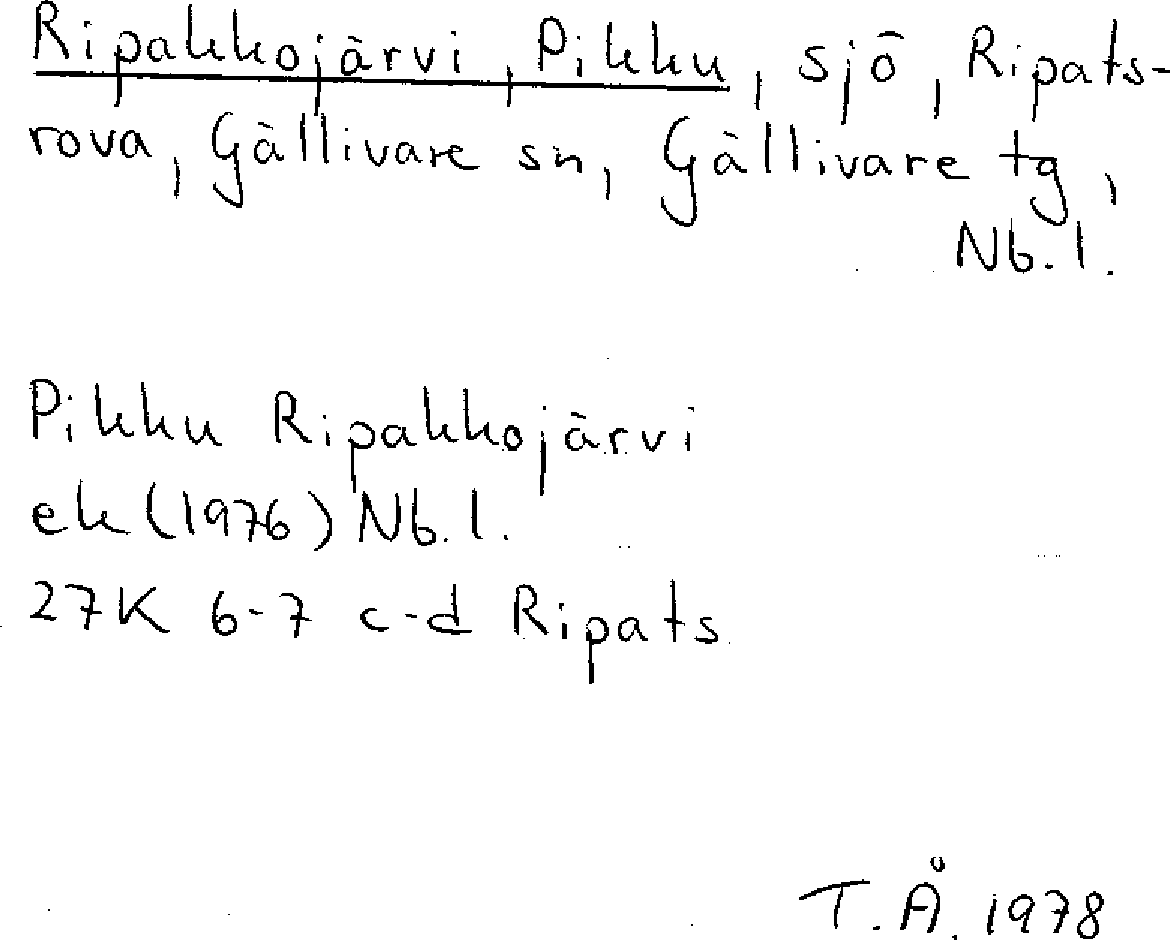 Ripakkojärvi, Pikku, sjö, Ripats-
rova, Gällivare sn, Gällivare tg,
Nb. l.
Pikku Ripakkojärvi
ek (1976) Nb. l.
27K 6-7 c-d Ripats
T.Å. 1978